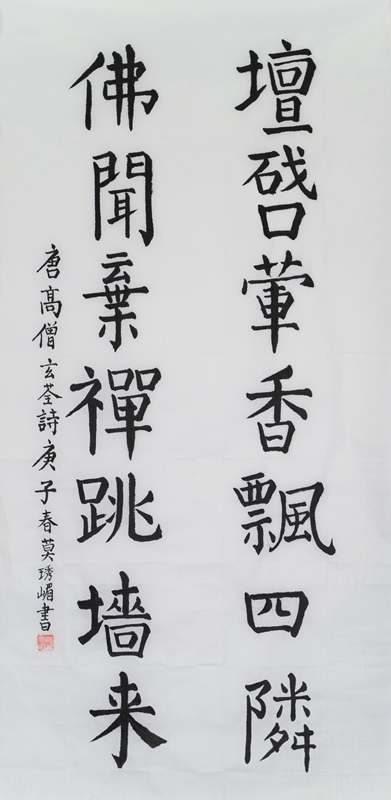 壇啓葷香飄四隣
佛聞棄禪跳墻来
唐高僧玄荃詩庚子春莫琇嵋書